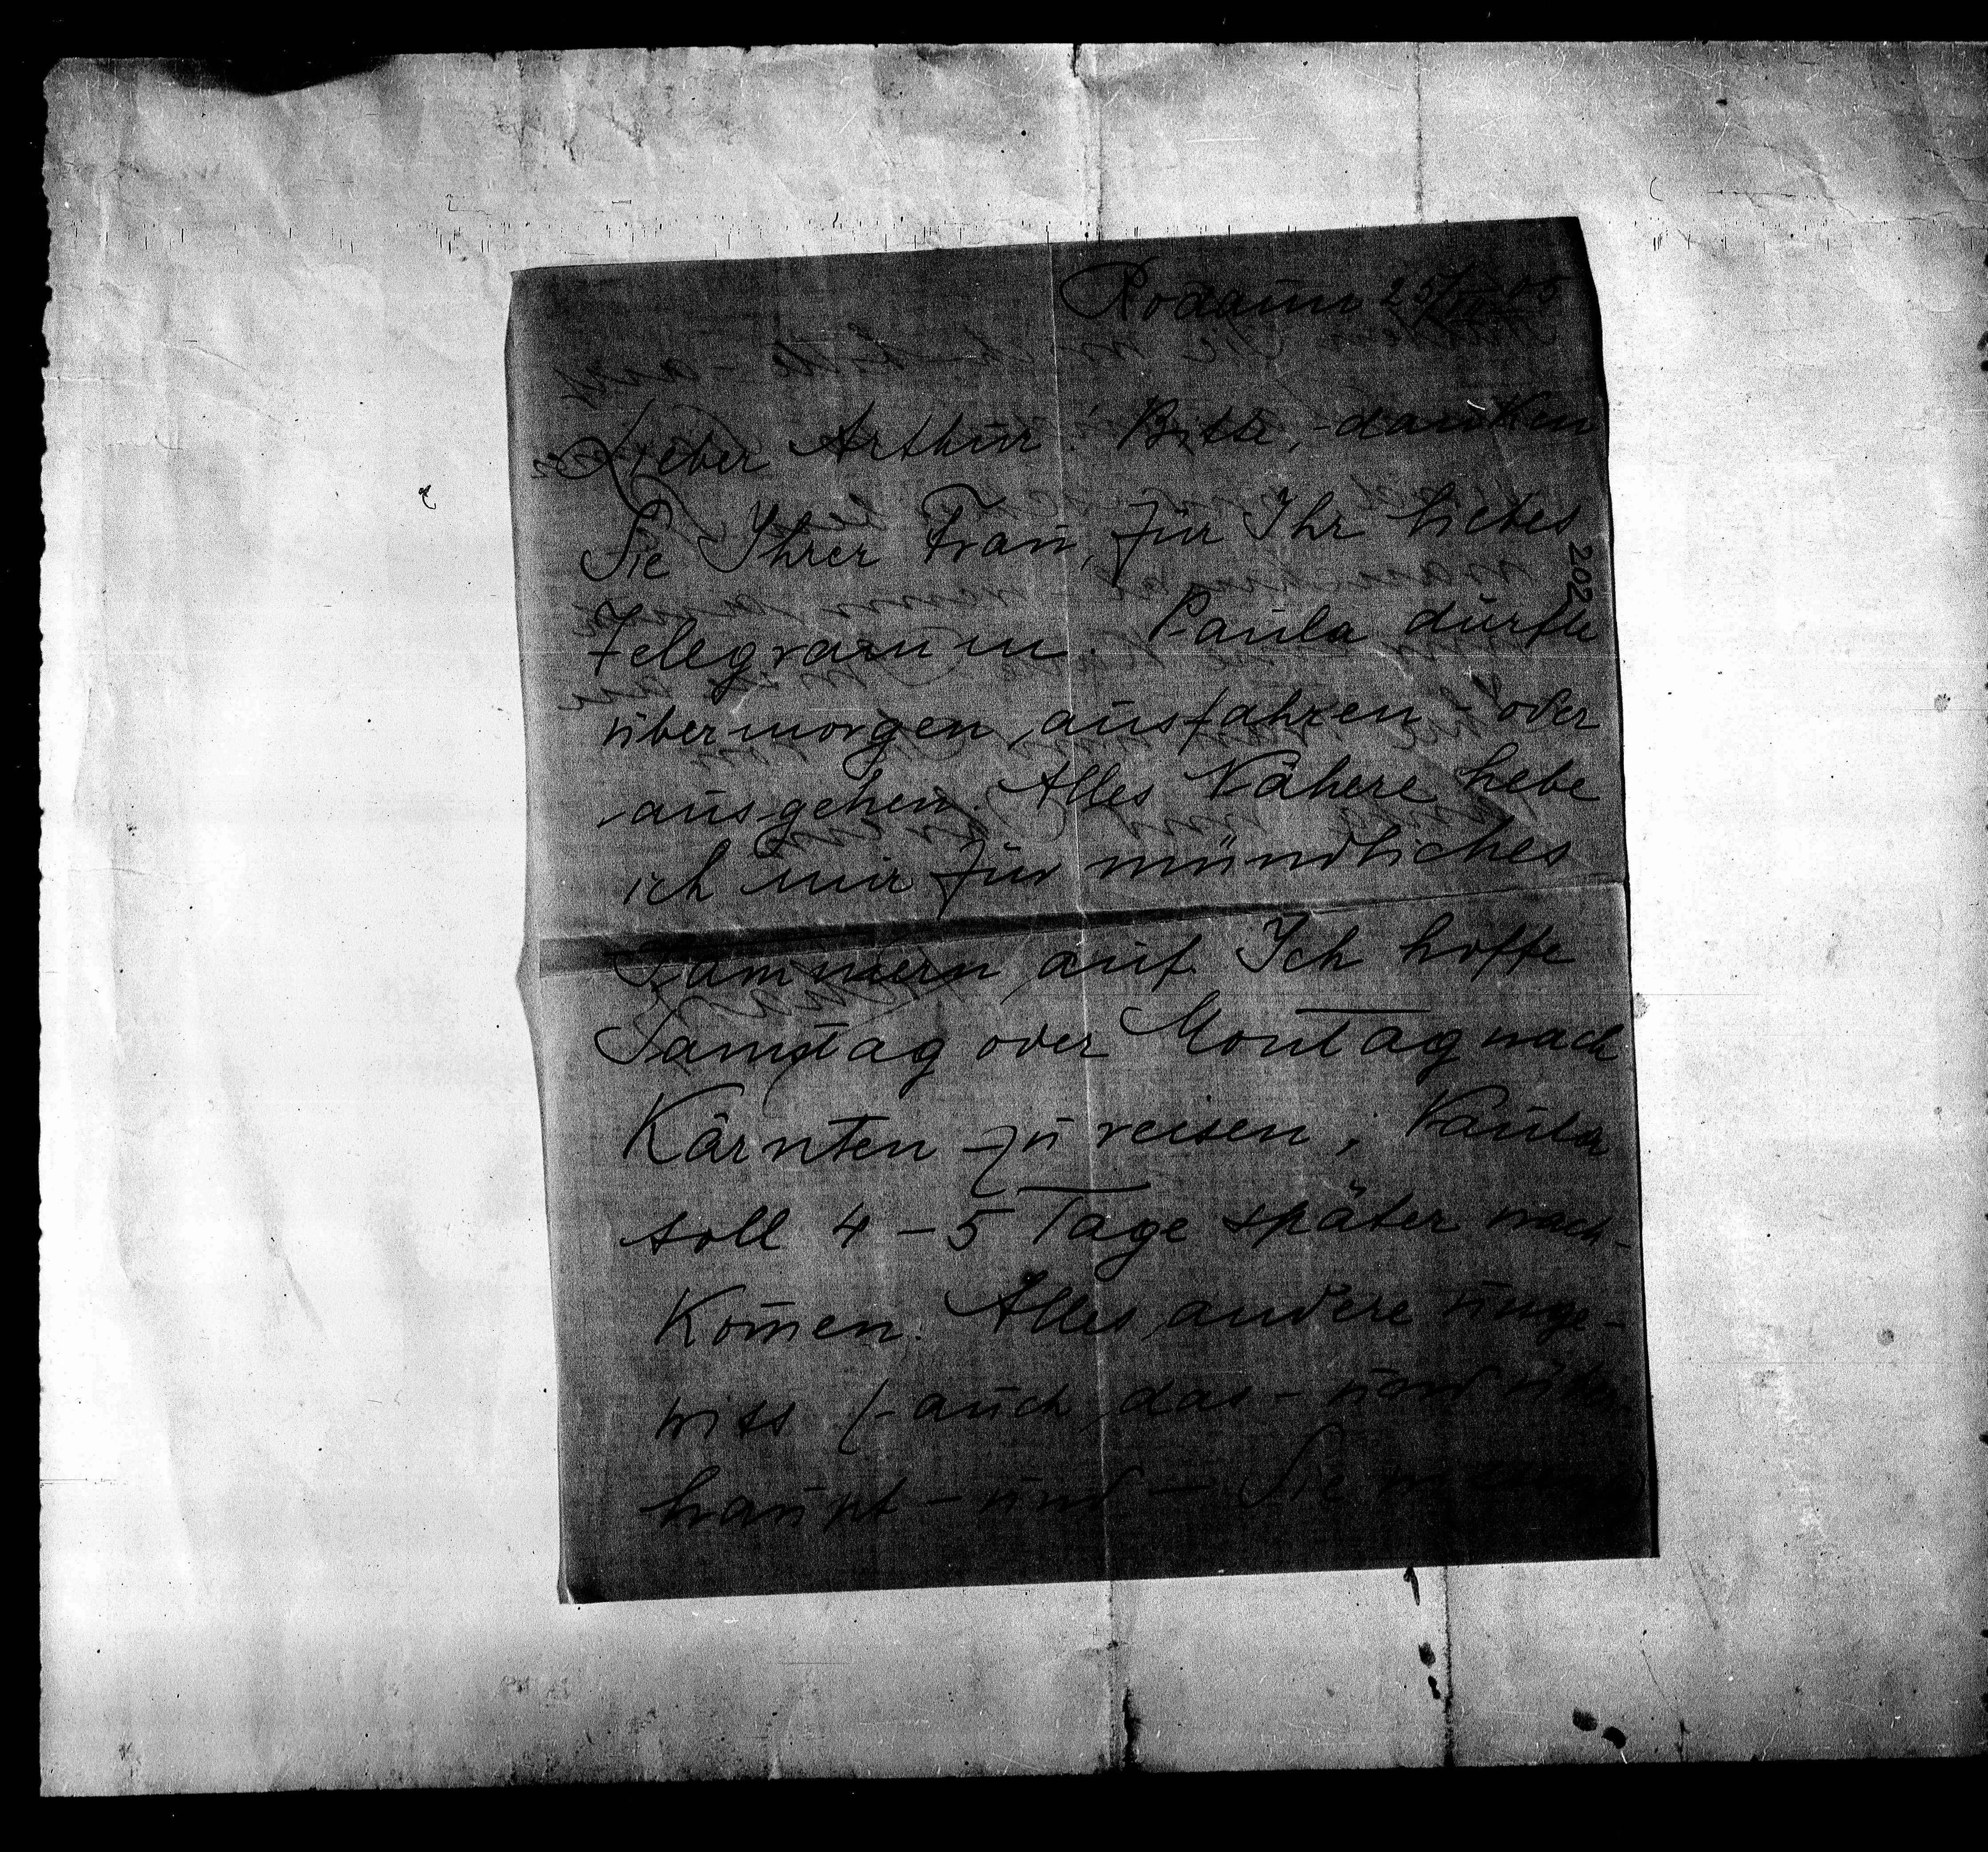 Rodaun 25/VII 05
Lieber Arthur! Bitte, danken
Sie Ihrer Frau, für Ihr liebes
202
Telegramm. Paula dürfte
übermorgen, ausfahren - oder
ausgehen. Alles Nähere hebe
ich mir für mündliches
Jammern auf. Ich hoffe
Samstag oder Montag nach
Kärnten zu reisen, Paula
soll 4 – 5 Tage später nach-
kom̄en. Alles, andere unge-
wiss (- auch das - und über
haupt - und – Sie